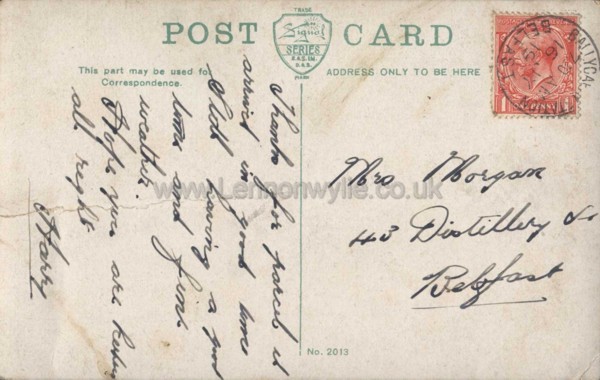 TRADE
POST CARD
Signal
SERIES
MARK
This part may be used for
Correspondence.
ADDRESS ONLY TO BE HERE
Thanks for parcel it
arrived in good time
Still having a good
time and fine
weather.
Hope you are keeping
all right
Harry
Mrs Morgan
43 Distillery St
Belfast
www.Lennonwylie.co.uk
No. 2013
BELFAST